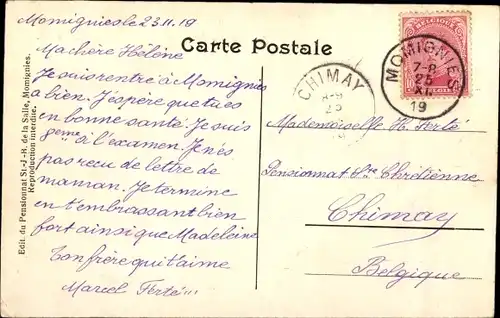 Momignies le 23.11.19
Carte Postale
Ma chère Hélène
Je suis rentré à Momignies
à bien. J'éspère que tu es
en bonne santé. Je suis
9eme à l'examen. Je n'es
pas reçu de lettre de
maman. Je termine
en t'embrassant bien
fort ainsi que Madeleine
Ton frère qui t'aime
Marcel Ferté
Edit. du Pensionnat St.-J.-B. de la Salle, Momignies.
Reproduction interdite.
CHIMAY
8-9
25
BELGIQUE
MOMIGNIES
7-8
25
XI
19
Mademoiselle H. Ferté
Pensionnat Ste Chrétienne
Chimay
Belgique